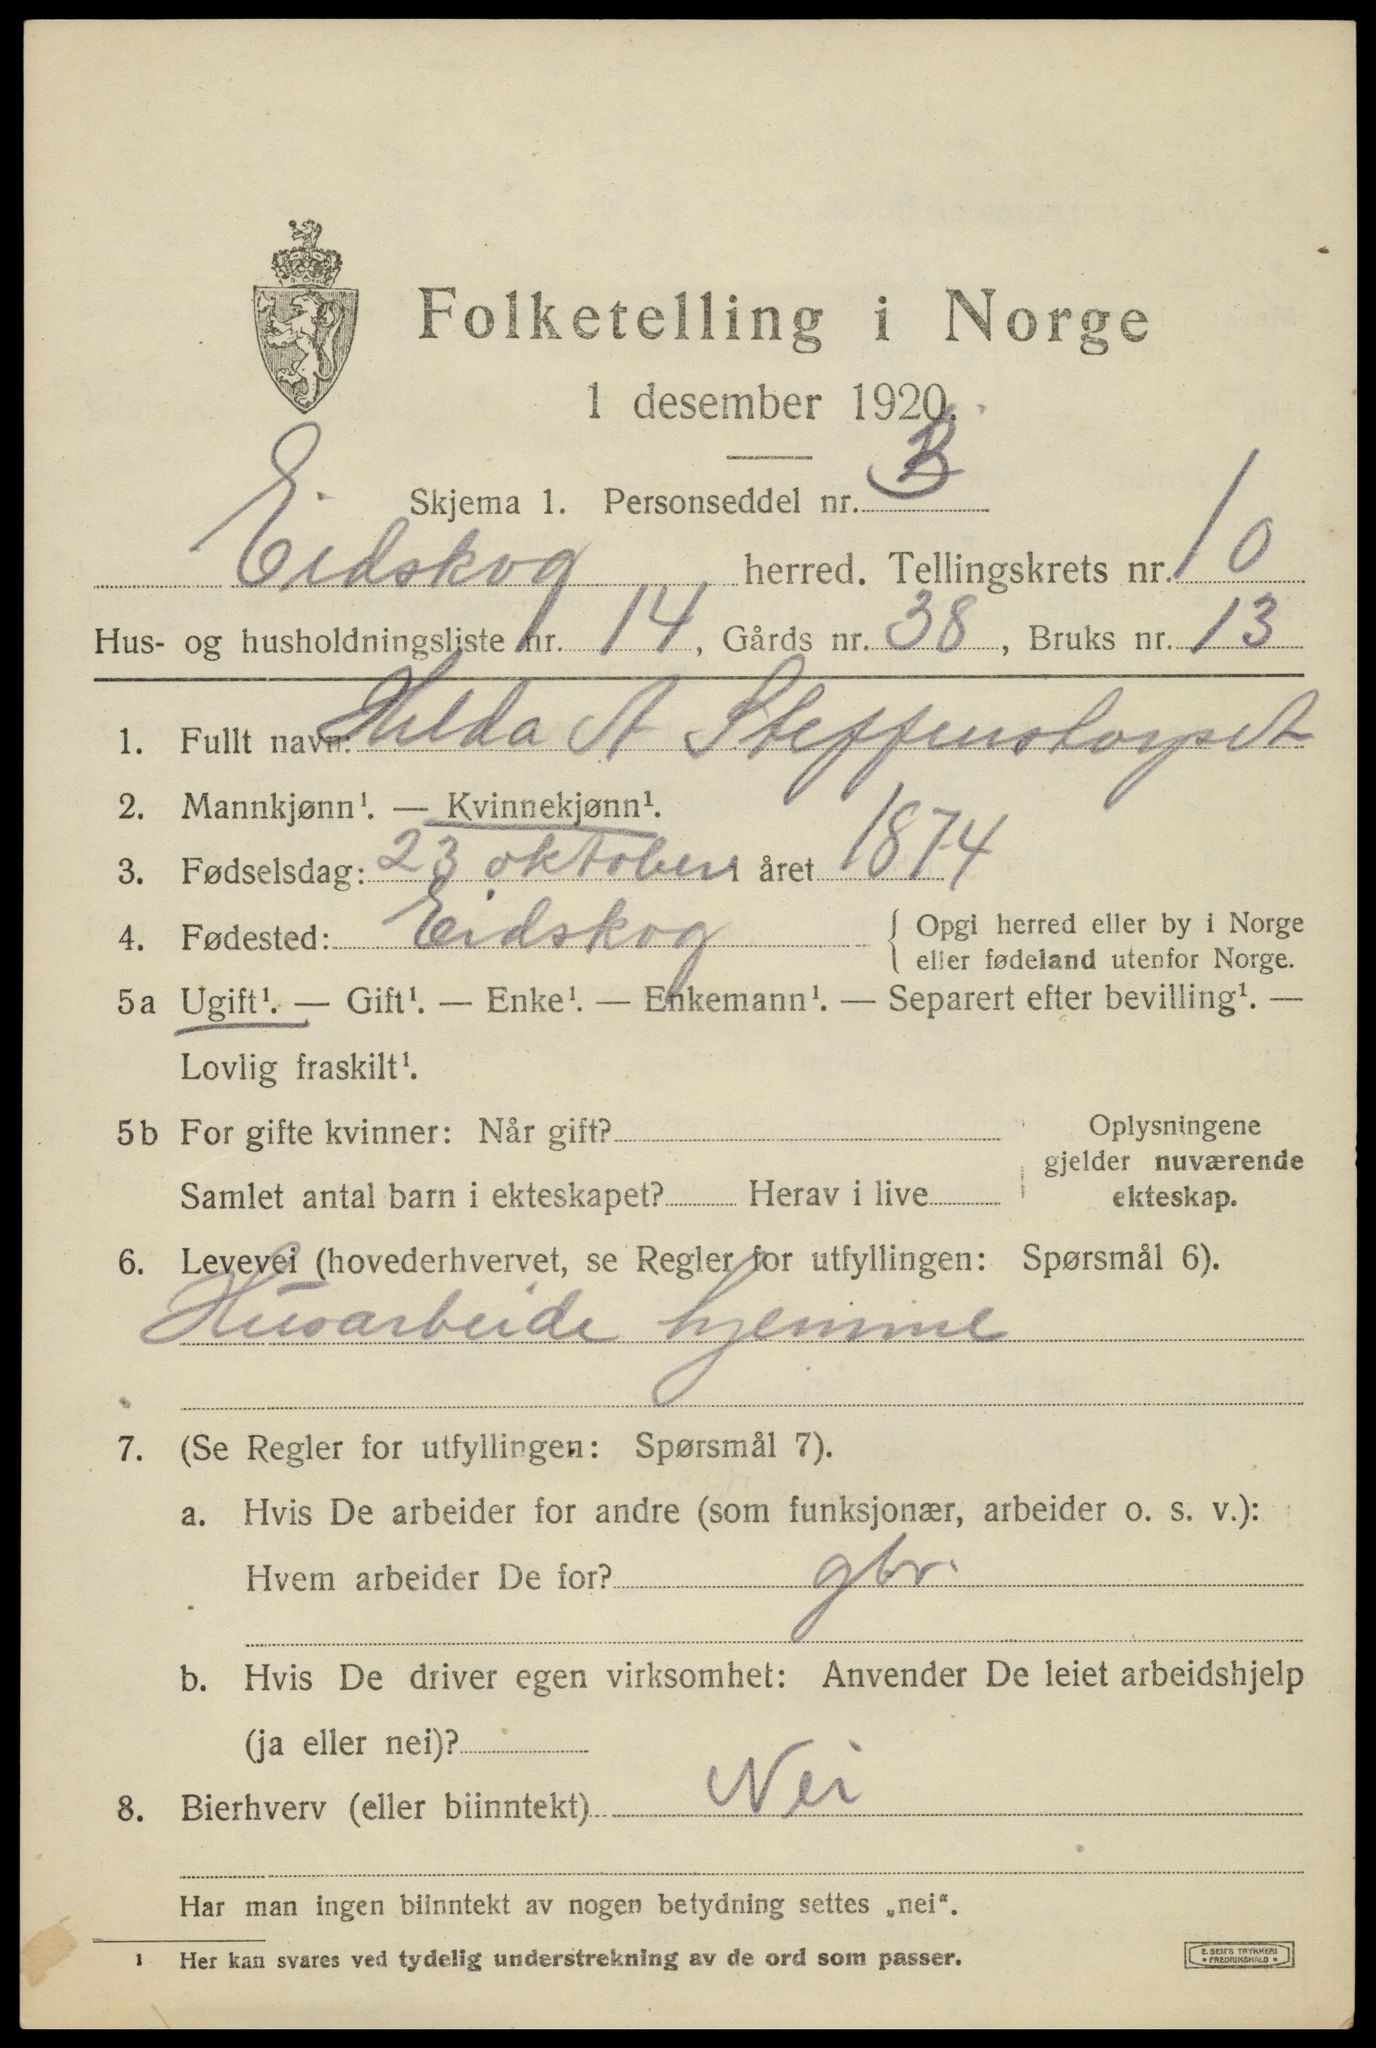 Folketelling i Norge
1 desember 1920.
Skjema 1. Personseddel nr.
Eidskog herred. Tellingskrets nr. 10
Hus- og husholdningsliste nr. 14, Gårds nr. 38, Bruks nr. 13
1. Fullt navn: Hilda A Steffenstorpset
2. Mannkjønn¹. — Kvinnekjønn¹.
3. Fødselsdag: 23 oktober året 1874
4. Fødested: Eidskog { Opgi herred eller by i Norge
eller fødeland utenfor Norge.
5a Ugift¹. — Gift¹. — Enke¹. — Enkemann¹. — Separert efter bevilling¹. —
Lovlig fraskilt¹.
5b For gifte kvinner: Når gift?
Samlet antal barn i ekteskapet? Herav i live
Oplysningene
gjelder nuværende
ekteskap.
6. Levevei (hovederhvervet, se Regler for utfyllingen: Spørsmål 6).
Husarbeide hjemme
7. (Se Regler for utfyllingen: Spørsmål 7).
a. Hvis De arbeider for andre (som funksjonær, arbeider o. s. v.):
Hvem arbeider De for? gbr.
b. Hvis De driver egen virksomhet: Anvender De leiet arbeidshjelp
(ja eller nei)?
8. Bierhverv (eller biinntekt) Nei
Har man ingen biinntekt av nogen betydning settes „nei“.
¹ Her kan svares ved tydelig understrekning av de ord som passer.
E. SEM'S TRYKKERI
• FREDRIKSHALD •